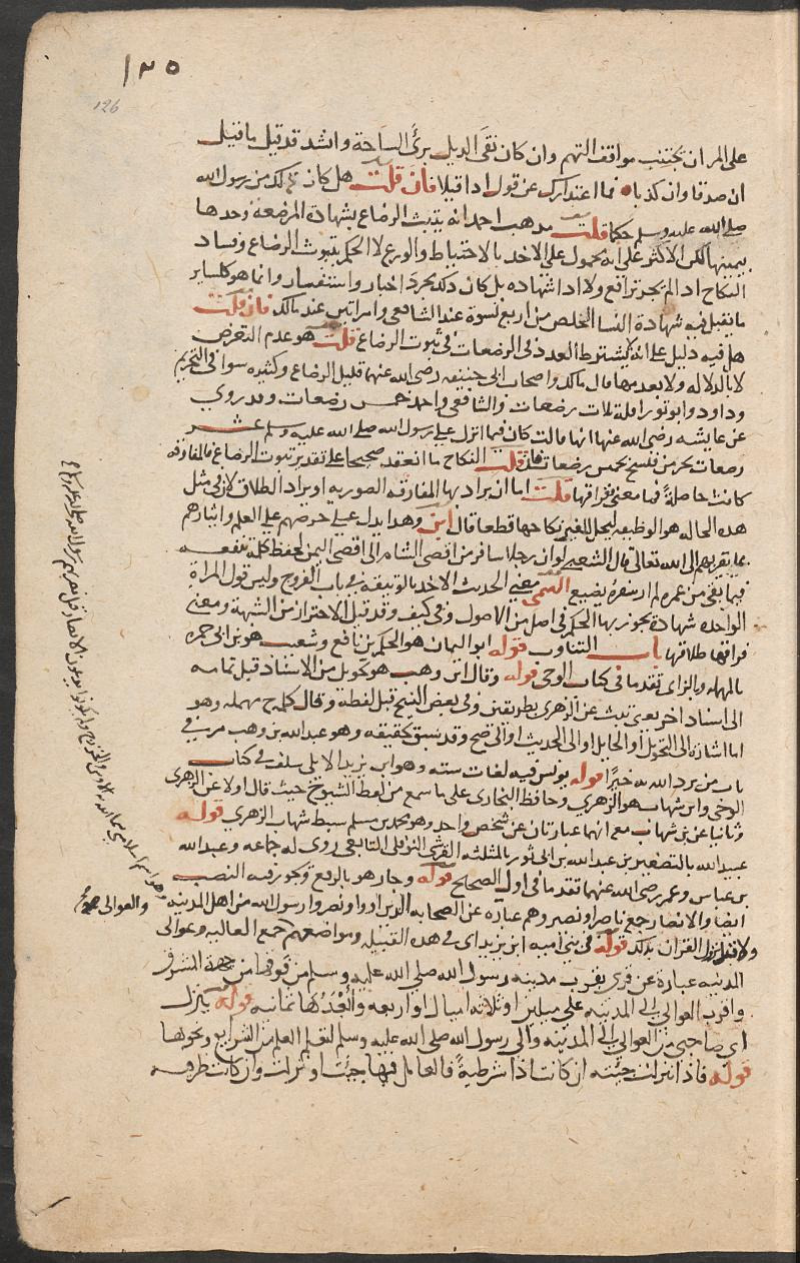 ١٢٥
126
على المران يجتنب مواقف التهم وان كان نقي الذيل برئ الساحة وانشد قد قيل ما قيل
ان صدقا وان كذبا فما اعتذارك عن قول اذا قيلا فان قلت هل كان ذلك من رسول الله
صلى الله عليه وسلم حكما قلت مذهب احمد انه يثبت الرضاع بشهادة المرضعة وحدها
بيمينها لكن الاكثر على انه محمول على الاخذ بالاحتياط والورع لا الحكم بثبوت الرضاع وفساد
النكاح اذ لم يجر ترافع ولا ادا شهادة بل كان ذلك مجرد اخبار واستفسار وانما هو كساير
ما تقبل فيه شهادة النسا الخلص من اربع نسوة عند الشافعي وامراتين عند مالك فان قلت
هل فيه دليل على انه لا يشترط العدد في الرضعات في ثبوت الرضاع قلت هو عدم التعرض
لا بالدلالة ولا بعدمها قال مالك واصحاب ابي حنيفه رضي الله عنهما قليل الرضاع وكثيره سوا في التحريم
وداود وابو ثور اقله ثلاث رضعات والشافعي واحمد خمس رضعات وقد روي
عن عايشه رضي الله عنها انها قالت كان فيما انزل على رسول الله صلى الله عليه وسلم عشر
رضعات يحرمن فنسخ بخمس رضعات فان قلت النكاح ما انعقد صحيحا على تقدير ثبوت الرضاع فالمفارقه
كانت حاصلة فما معنى فراقها قلت اما ان يراد بها المفارقه الصوريه او يراد الطلاق لان في مثل
هذه الحاله هو الوظيفه ليحل للغير نكاحها قطعا قال ابن وهذا يدل على حرصهم على العلم وايثارهم
ما يقربهم الى الله تعالى قال الشعبي لو ان رجلا سافر من اقصى الشام الى اقصى اليمن لحفظ كلمة تنفعه
فيما بقي من عمره لم ار سفره يضيع التيمي معنى الحديث الاخذ بالوثيقه في باب الفروج وليس قول المراة
الواحده شهادة يجوز بها الحكم في اصل من الاصول وفي كيف وقد قيل الاحتراز من الشبهة ومعنى
فراقها طلاقها باب التناوب قوله ابو اليمان هو الحكم بن نافع وشعيب هو بن ابي حمزه
بالمهمله وبالزاي تقدما في كتاب الوحي قوله وقال ابن وهب هو تحويل من الاسناد قبل تمامه
الى اسناد اخر يعني يثبت عن الزهري بطريقين وفي بعض النسخ قبل لفظة وقال كلمة ح مهمله وهو
اما اشارة الى التحويل او الحايل او الى الحديث او الى صح وقد سبق تحقيقه وهو عبد الله بن وهب مر في
باب من يرد الله به خيرا قوله يونس فيه لغات سته وهو ابن يزيد الايلي سلف في كتاب
الوحي وابن شهاب هو الزهري وحافظ البخاري على ما سمع من لفظ الشيوخ حيث قال اولا عن الزهري
وثانيا عن بن شهاب مع انهما عبارتان عن شخص واحد وهو محمد بن مسلم بن شهاب الزهري قوله
عبيد الله بالتصغير بن عبد الله بن ابي ثور بالمثلثه القرشي النوفلي التابعي روى له جماعه وعبد الله
بن عباس وعمر رضي الله عنهما تقدما في اول الصحيح قوله وجار هو بالرفع وجوز فيه النصب
ايضا والانصار جمع ناصر او نصير وهم عبارة عن الصحابه الذين اووا ونصروا رسول الله من اهل المدينه
ولا قبل نزول القران بذلك قوله في بني اميه ابن زيد اي في هذه القبيله ومواضعهم والعوالي جمع العاليه وعوالي
المدينه عبارة عن قرى بقرب مدينه رسول الله صلى الله عليه وسلم من فوقها من جهة الشرق
واقرب العوالي الى المدينه على ميلين او ثلاثه اميال او اربعه وابعدها ثمانيه قوله ينزل
اي صاحبي من العوالي الى المدينه والى رسول الله صلى الله عليه وسلم لتعلم العلم من الشرايع ونحوها
قوله فاذا نزلت جئته ان كانت اذا شرطية فالعامل فيها جئت او نزلت وان كانت ظرفيه
وهو اسم اسلامي سماهم به الاوس والخزرج ولم يكونوا يدعون الانصار قبل نصرتهم رسول الله صلى الله عليه وسلم